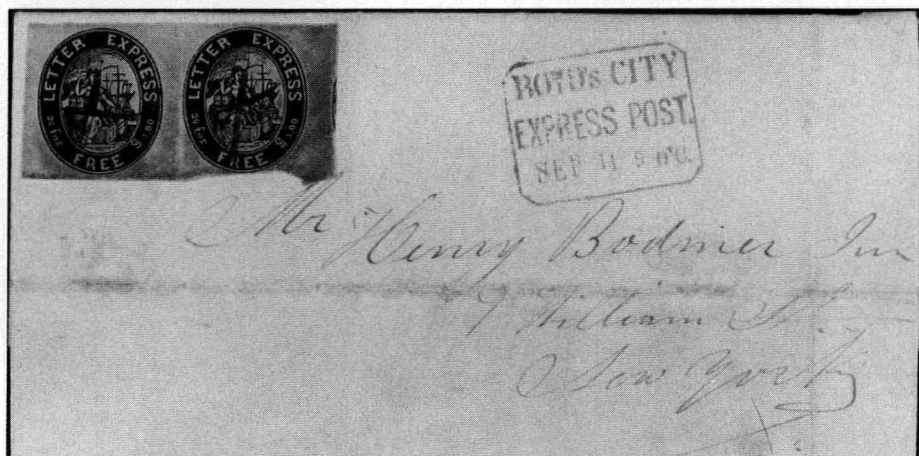 LETTER EXPRESS FREE 20 FOR $1.00
LETTER EXPRESS FREE 20 FOR $1.00
BOYD's CITY
EXPRESS POST.
SEP 11 9 O'C.
Mr Henry Bodmer Jun
7 William St.
New York